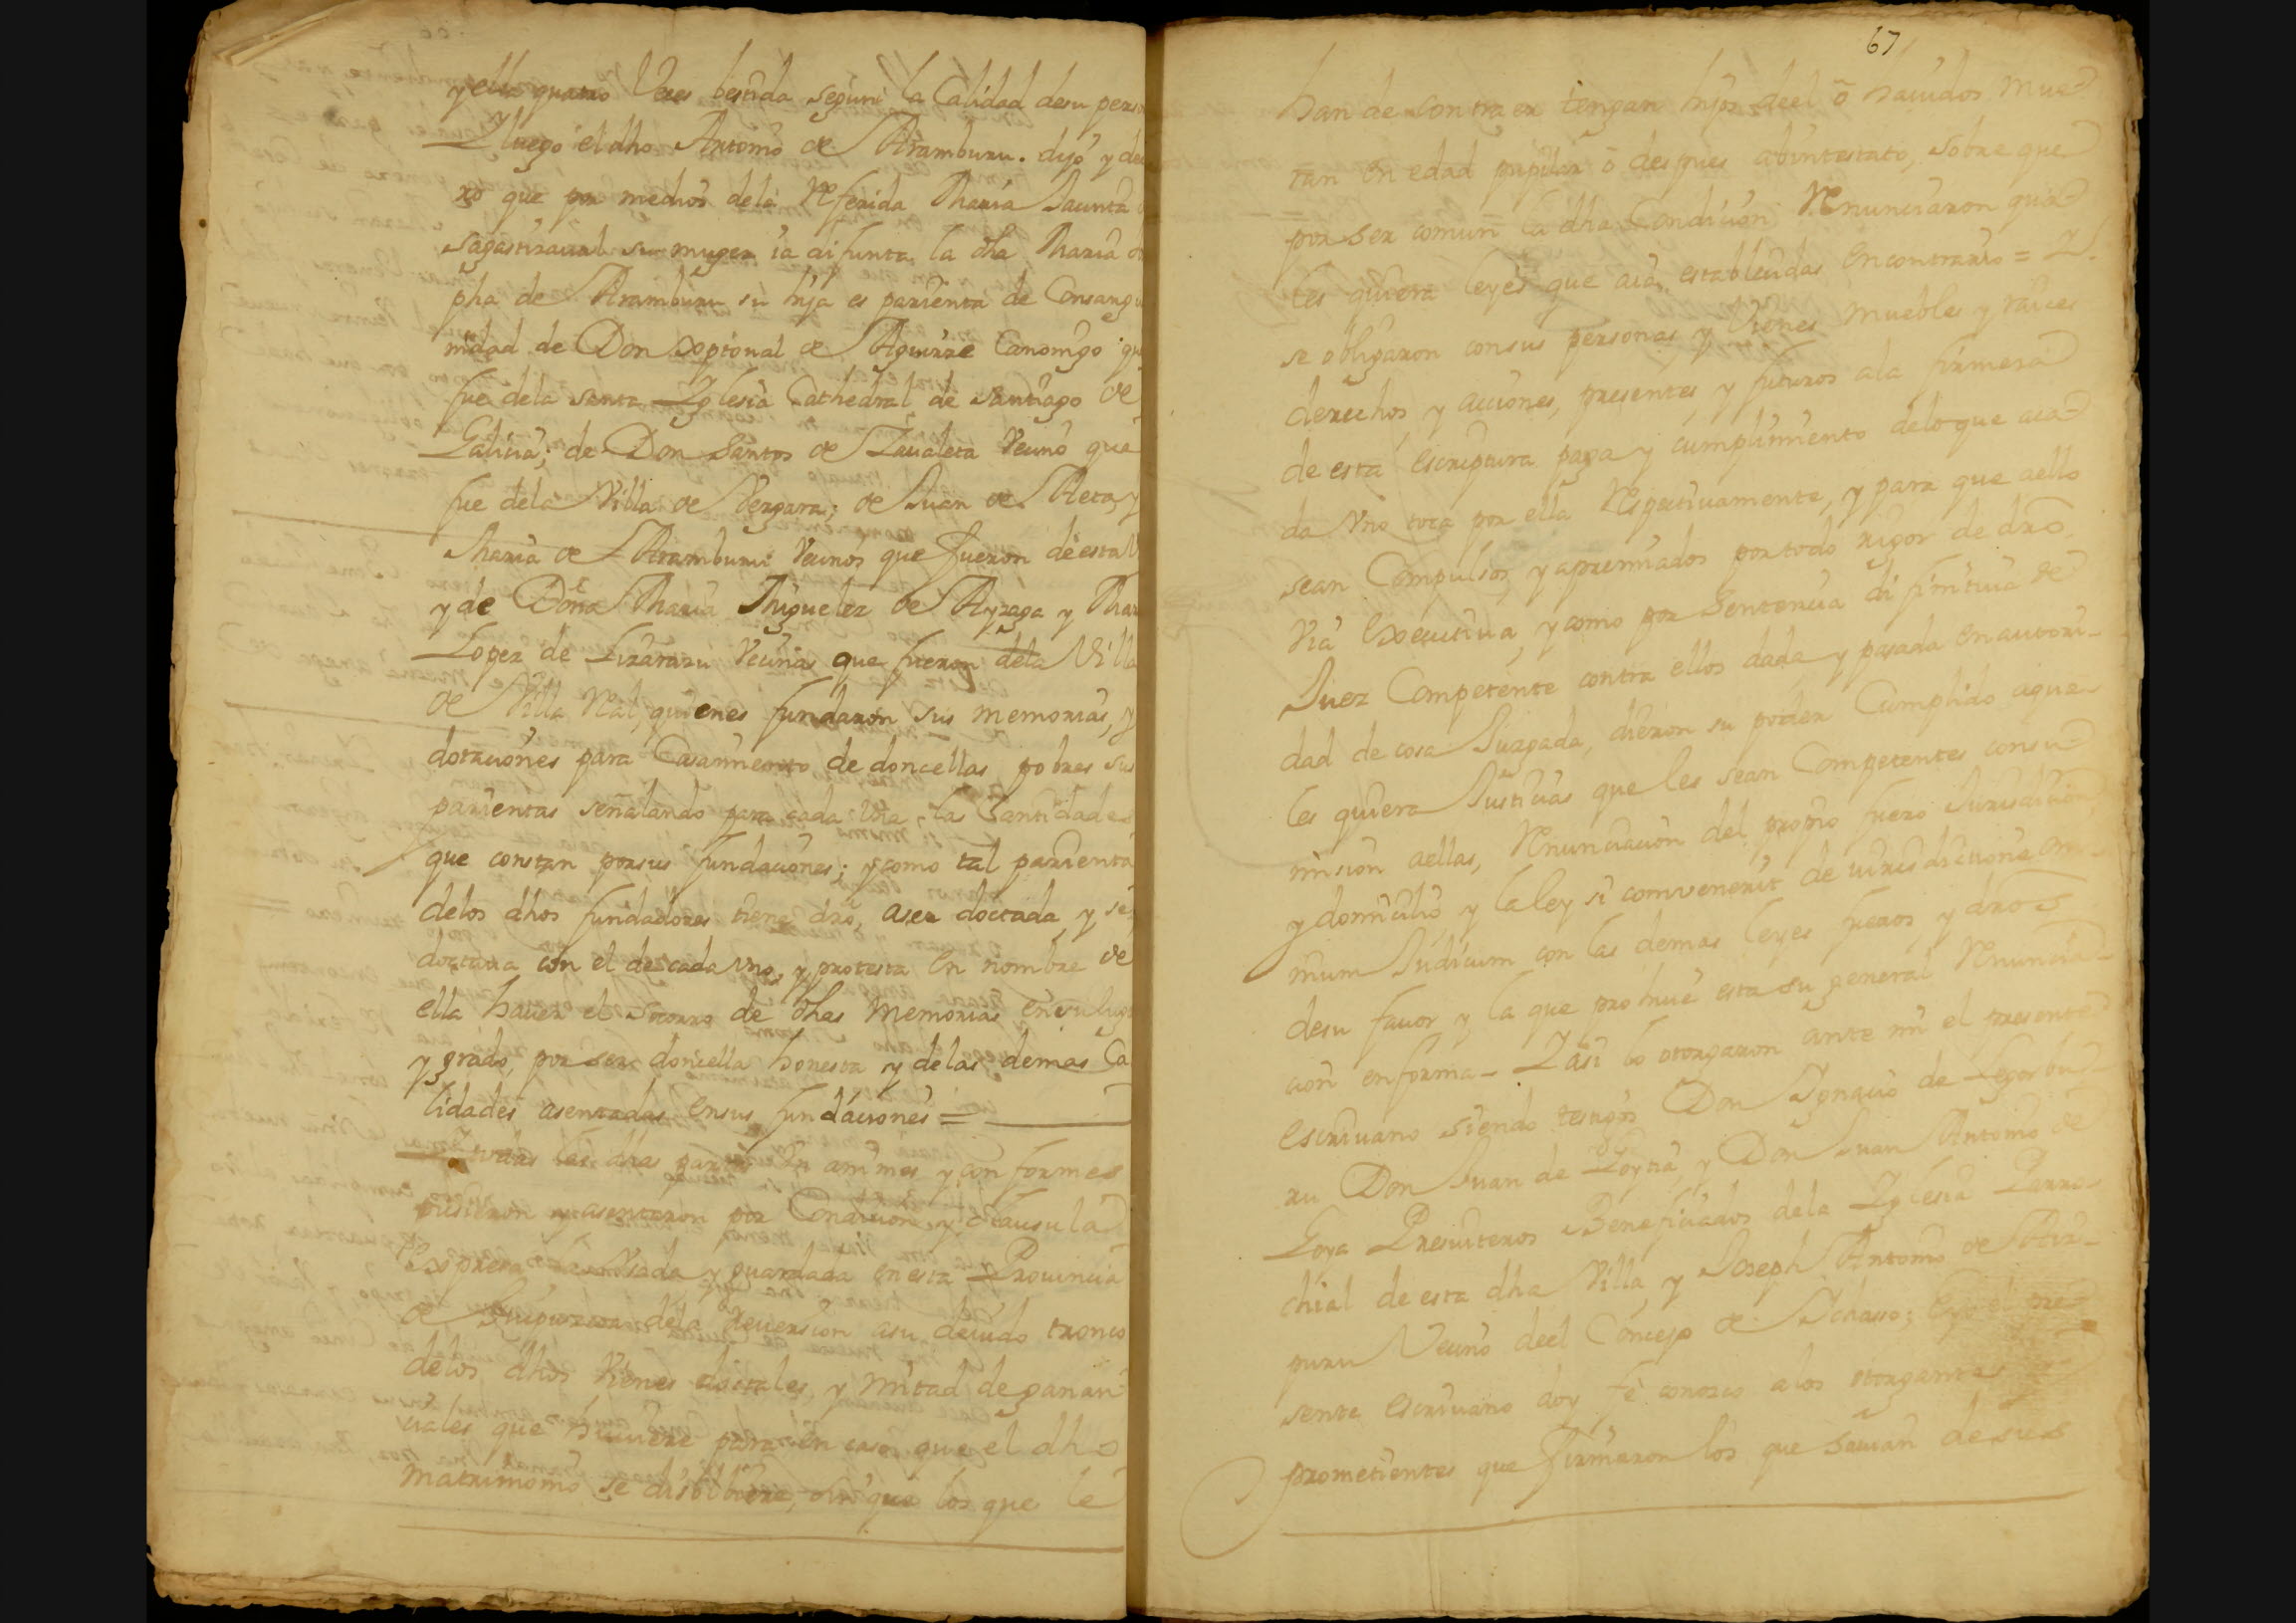 y ella quatro Veces bestida segun la Calidad desu perso
Y luego el dho Antonio de Aramburu. dijo y de
xo que por medios dela Referida Maria Jacinta
sagastizaual su muger ia difunta la dha Maria
pha de Aramburu su hija es parienta de Consangui
nidad de Don Xptoual de Aguirre Canonigo que
fue dela santa Yglesia Cathedral de Santiago de
Galicia; de Don Santos de Zaualeta Vecino que
fue dela Villa de Vergara; de Juan de Areta, y
Maria de Aramburu Vecinos que fueron de esta V
y de Doña Maria Miguelez de Ayzaga y Mar
Lopez de Lizarazu Vecinas que fueron dela Villa
de Villa Real, quienes fundaron sus memorias, y
dotaciones para Casamiento de doncellas pobres sus
parientas señalando para cada Vna, las Cantidades
que constan porsus fundaciones; y como tal parienta
delos dhos fundadores tiene dro, aser doctada, y se
doctaua con el de cada vno, y protesta en nombre de
ella hauer el socorro de dhas Memorias en su lugar
y grado, por ser doncella honesta y delas demas Ca
lidades asentadas ensus fundaciones =
Y todas las dhas partes Vn animes y con formes
pusieron y asentaron por Condicion y clausula
Expresa la Vsada y guardada en esta Prouincia
de Guipuzcoa dela Reuersion asu deuido tronco
delos dhos Vienes doctales, y mitad de ganan
ciales que huuiere para en caso que el dho
Matrimonio se disolbiere, sin que los que le
67
han de Contraer tengan hijos deel ô hauidos mue
ran en edad pupilar ô despues abintestato, sobre que
por ser comun la dha Condicion Renunciaron quá
les quiera leyes que aia establecidas en contrario = Y
se obligaron consus personas y Vienes muebles y raices
derechos y acciones, presentes y futuros ala firmeza
de esta escriptura paga y cumplimiento delo que aca
da Vno toca por ella Respectiuamente, y para que aello
sean Compulsos, y apremiados por todo rigor de dro
Via Executiua, y como por Sentencia difinitiua de
Juez Competente contra ellos dada y pasada en autori-
dad de cosa Juzgada, dieron su poder Cumplido aqua
les quiera Justicias que les sean Competentes consu
mision aellas, Renunciacion del propio fuero Jurisdicion
y domicilio, y la ley si comvenerit de iurisdictione om-
nium Judicum con las demas leyes fueros y dros
desu fauor y la que prohiue esta su general Renuncia-
cion enforma - Y asi lo otorgaron ante mi el presente
escriuano siendo testigos Don Ignacio de Legorbu-
ru Don Juan de Loytia, y Don Juan Antonio de
Goya Presuiteros Beneficiados dela Yglesia Parro
chial de esta dha Villa, y Joseph Antonio de Aiz-
puru Vecino deel Concejo de Ichasso; e yo el pre
sente escriuano doy fè conozco alos otorgantes
prometientes que firmaron los que sauian desus